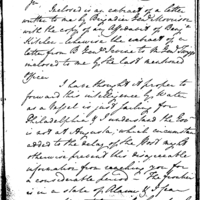 Sir
Inclosed is an extract of a letter
written to me by Brigadier Genl. Morrison
with the copy of an Affidavit of Benj.n
Kitchen likewise the extract of a
letter from B. Genl. Irwine to Br. Genl.
inclosed to me by the last mentioned
Officer
I have thought it proper to
forward this intelligence by Water
as a Vessel is just sailing for
Philadelphia & I understand the Gov-
is not at Augusta, which circumstance
added to the delay of the Post might
otherwise prevent this disagreeable
information from reaching you for
a considerable period. The frontier
is in a state of Alarm & I fear